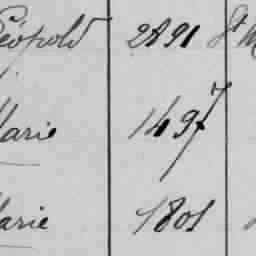 Léopold 2891 St M
Marie 1497
Marie 1801